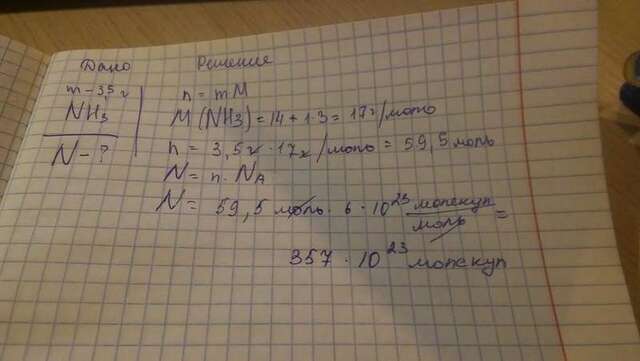 Дано
m – 3,5 г
NH3
N – ?
Решение
n = mM
M (NH3) = 14 + 1·3 = 17г/моль
n = 3,5г · 17г/моль = 59,5 моль
N = n · NA
N = 59,5 моль · 6 · 10^23 молекул/моль =
357 · 10^23 молекул